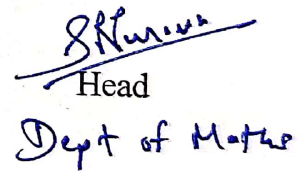 Head
Dept of Maths